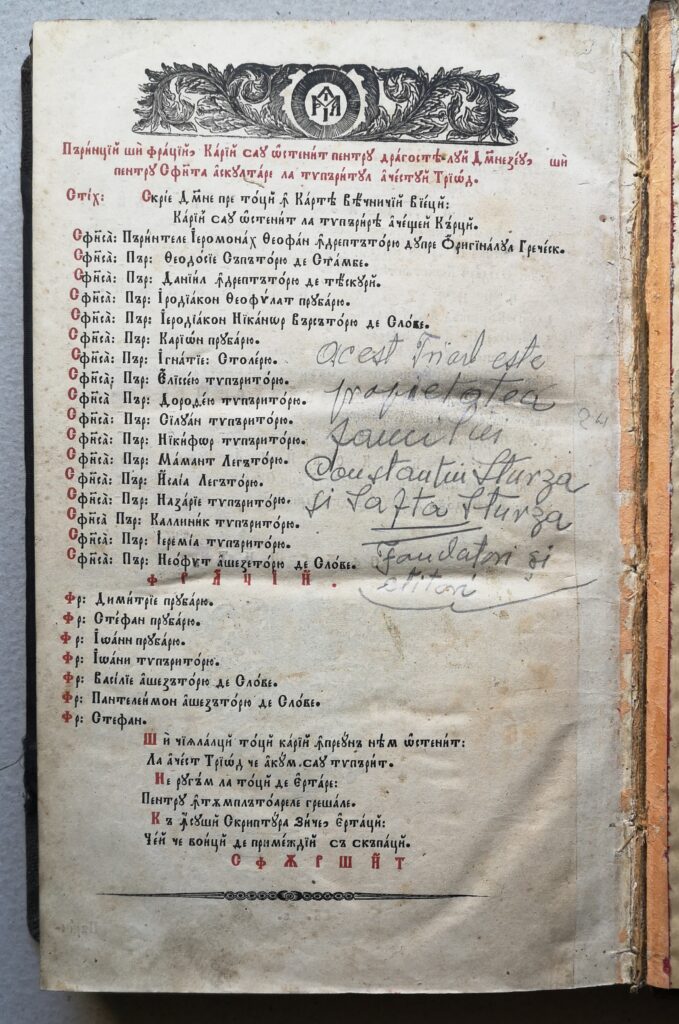 Пъринцїй ши фраций, Карїй сау ѡстенит пентру драгостѣ луй Дм҃незеу, ши
пентру Сфи҃та аскултаре ла типъритул ачестуй Трїѡд.
Стїх: Скрїе Дм҃не пре тоцй ꙟ Картѣ Вѣчничїй Вїецй:
Карїй сау ѡстенит ла типърирѣ ачещей Кърцй.
Сфи҃їса: Пъринтеле Їеромонах Ѳеофан ꙟдрептъторю дупре Ѻригиналул Греческ.
Сфи҃їса: Пър: Ѳеодосїе Съпъторю де Стамбе.
Сфи҃їса: Пър: Данїил ꙟдрептъторю де тѣскурй.
Сфи҃їса: Пър: Їродїакон Ѳеофѵлат прубарю.
Сфи҃їса: Пър: Їеродїакон Никанѡр Върсъторю де Слове.
Сфи҃їса: Пър: Карїѡн прубарю.
Сфи҃їса: Пър: Їгнатїе: Столерю.
Сфи҃їса: Пър: Єлїсею типъриторю.
Сфи҃їса: Пър: Дороѳею типъриторю.
Сфи҃їса: Пър: Сїлуан типъриторю.
Сфи҃їса: Пър: Никифор типъриторю.
Сфи҃їса: Пър: Мамант Легъторю.
Сфи҃їса: Пър: Исаїа Легъторю.
Сфи҃їса: Пър: Назарїе типъриторю.
Сфи҃їса Пър: Каллиник типъриторю.
Сфи҃їса: Пър: Їеремїа типъриторю.
Сфи҃їса: Пър: Неофѵт ашезеторю де Слове.
ФРАЧИЙ.
Фр: Димитрїе прубарю.
Фр: Стефан прубарю.
Фр: Їѡанн прубарю.
Фр: Їѡанн типъриторю.
Фр: Василїе ашезъторю де Слове.
Фр: Пантелеймон ашезъторю де Слове.
Фр: Стефан.
Ши чїялалцй тоцй карїй ꙟпреун нѣм ѡстенит:
Ла ачест Трїѡд че акум сау типърит.
Не ругъм ла тоцй де Єртаре:
Пентру ꙟтѫмплътоареле грешале.
Къ ꙟсуши Скриптура Зиче, Єртацй:
Чей че воицй де примеждїй съ скъпацй.
СФѪРШИТ
Acest Triod este
propietatea
familiei
Constantin Sturza
și Safta Sturza
Fondatori și
ctitori
24